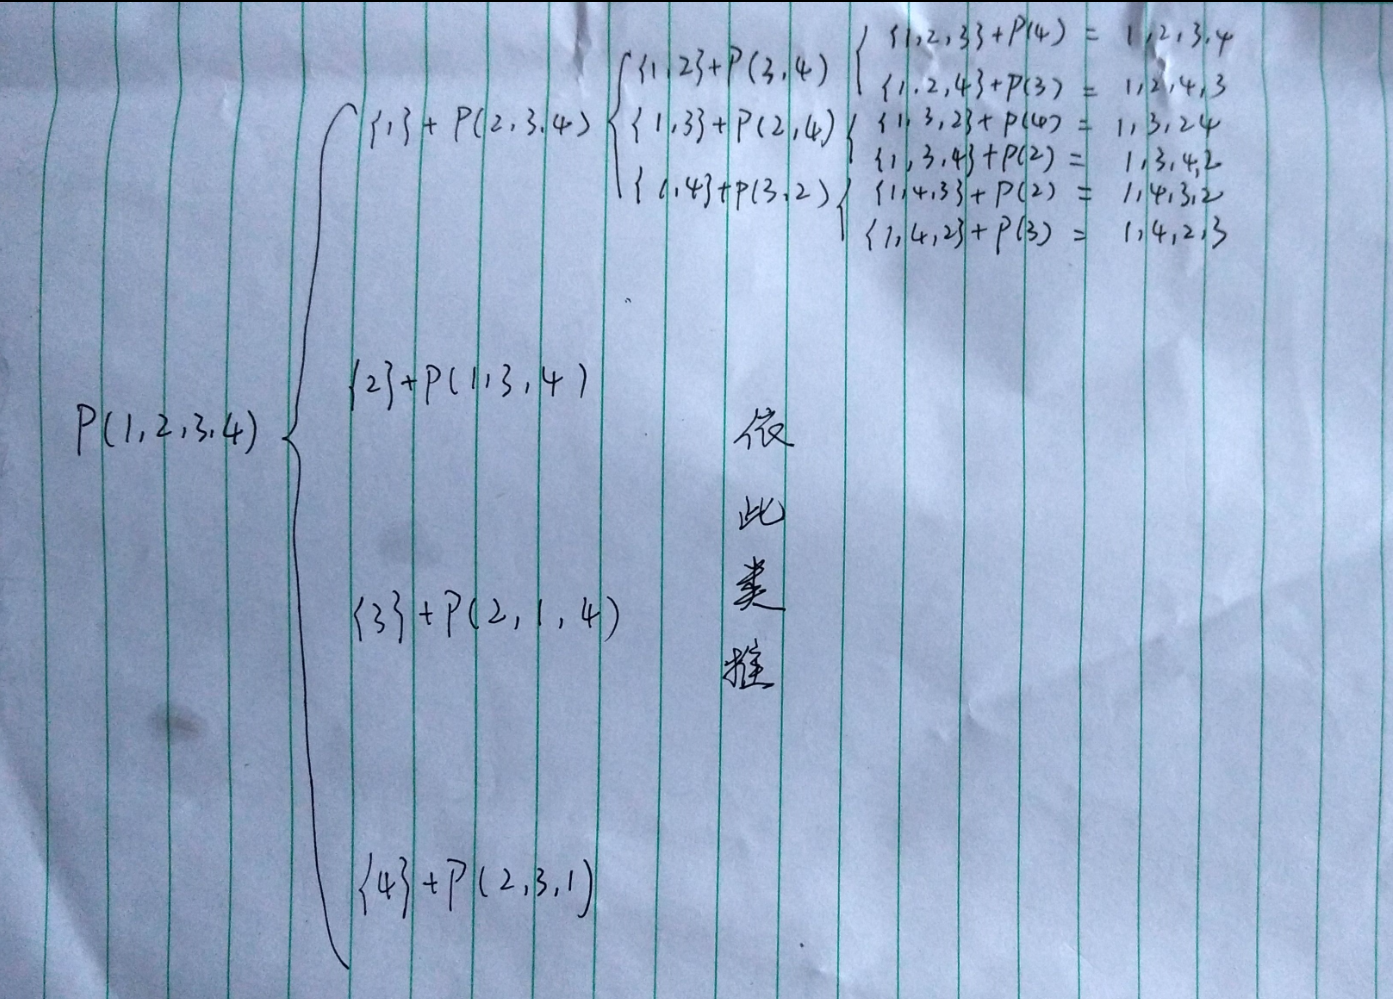 {1,2,3}+P(4) = 1,2,3,4
{1,2}+P(3,4)
{1,2,4}+P(3) = 1,2,4,3
{1}+P(2,3,4)
{1,3}+P(2,4)
{1,3,2}+P(4) = 1,3,24
{1,3,4}+P(2) = 1,3,4,2
{1,4}+P(3,2)
{1,4,3}+P(2) = 1,4,3,2
{1,4,2}+P(3) = 1,4,2,3
{2}+P(1,3,4)
P(1,2,3,4)
依
此
类
推
{3}+P(2,1,4)
{4}+P(2,3,1)